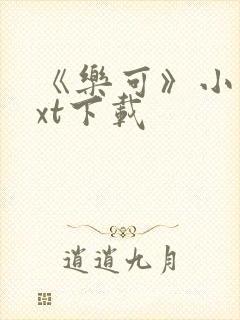 《樂可》小
xt下載
逍逍九月